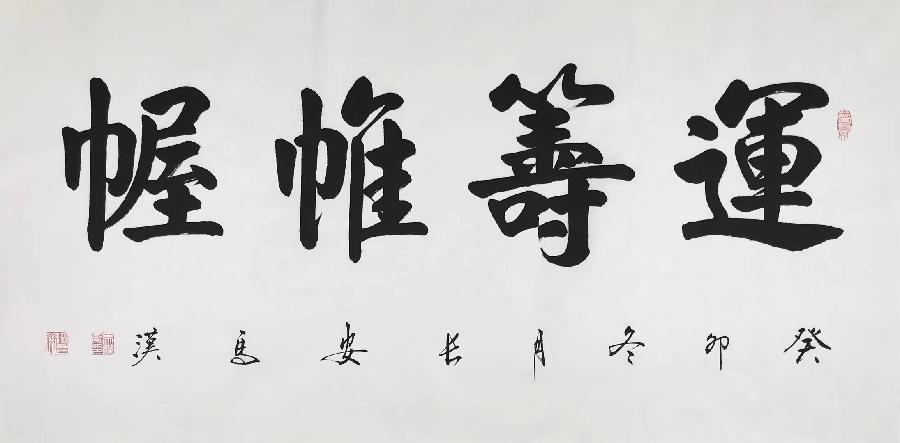 運籌帷幄
癸卯冬月长安馬漢